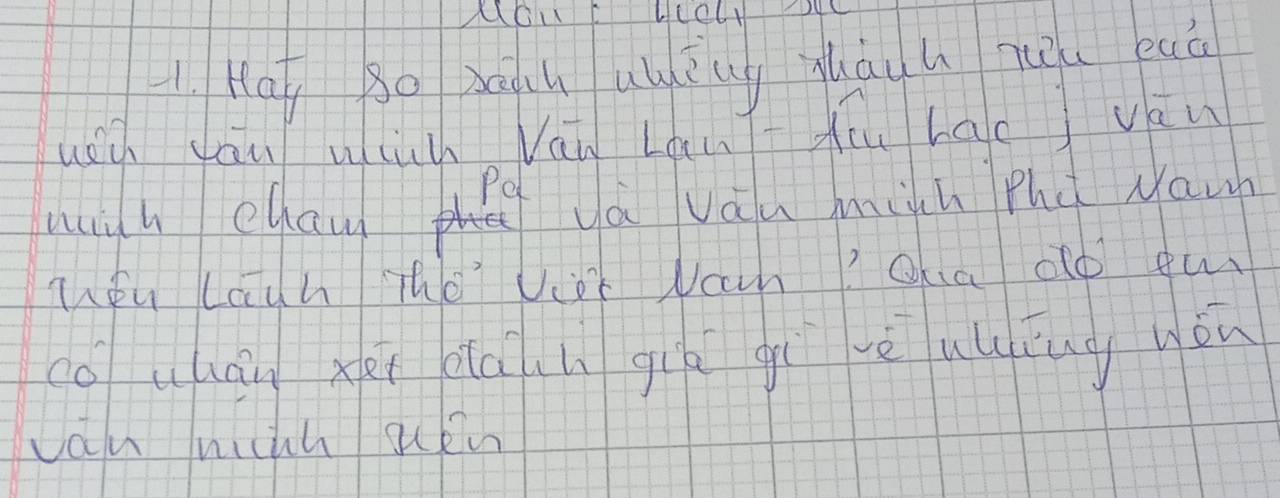 Môn : Lịch Sử
1. Hãy so sánh những thành tựu của
nền văn minh Văn Lan - Âu Lạc ; văn
minh Chăm Pa và văn minh Phù Nam
trên Lãnh Thổ Việt Nam ? Qua đó em
có nhận xét đánh giá gì về những nền
văn minh trên